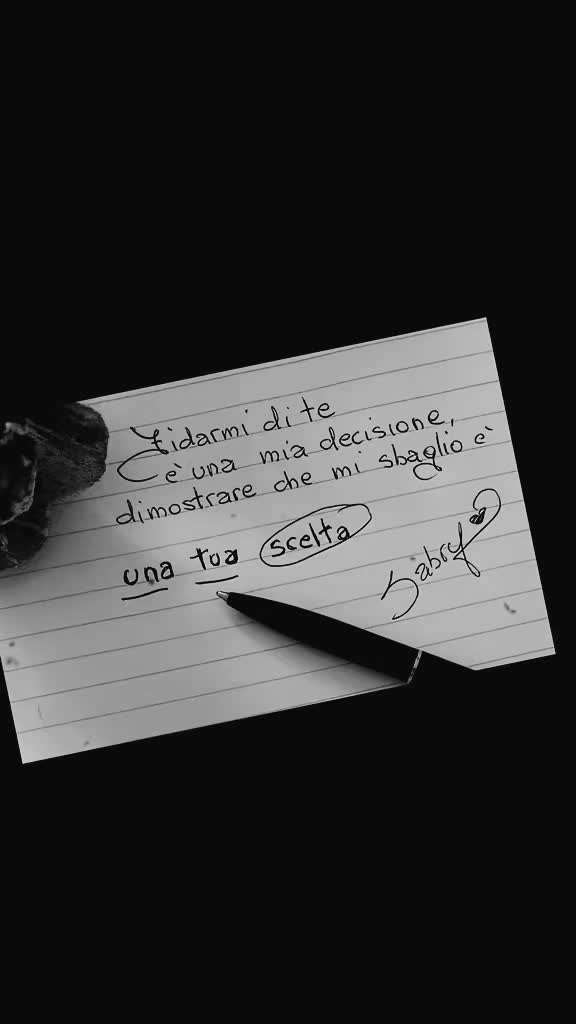 Fidarmi di te
è una mia decisione,
dimostrare che mi sbaglio è
una tua scelta
Sabry